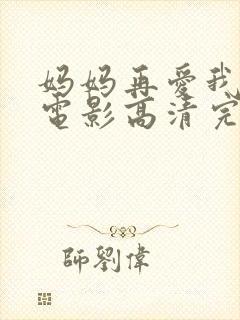 妈妈再愛我
電影高清完
師劉偉